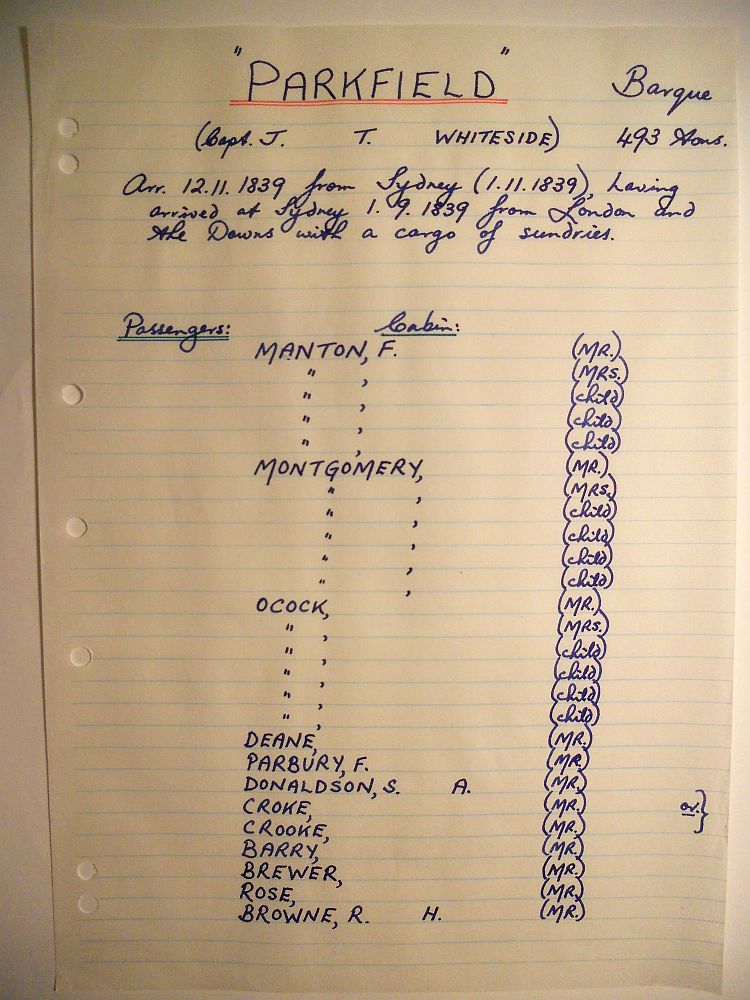 "PARKFIELD" Barque
(Capt. J. T. WHITESIDE) 493 tons.
Arr. 12.11.1839 from Sydney (1.11.1839), having
arrived at Sydney 1.9.1839 from London and
the Downs with a cargo of sundries.
Passengers: Cabin:
MANTON, F. (MR.)
" , (MRS.)
" , (child)
" , (child)
" , (child)
MONTGOMERY, (MR.)
" , (MRS.)
" , (child)
" , (child)
" , (child)
" , (child)
OCOCK, (MR.)
" , (MRS.)
" , (child)
" , (child)
" , (child)
" , (child)
DEANE, (MR.)
PARBURY, F. (MR.)
DONALDSON, S. A. (MR.)
CROKE, (MR.) or. }
CROOKE, (MR.)
BARRY, (MR.)
BREWER, (MR.)
ROSE, (MR.)
BROWNE, R. H. (MR.)